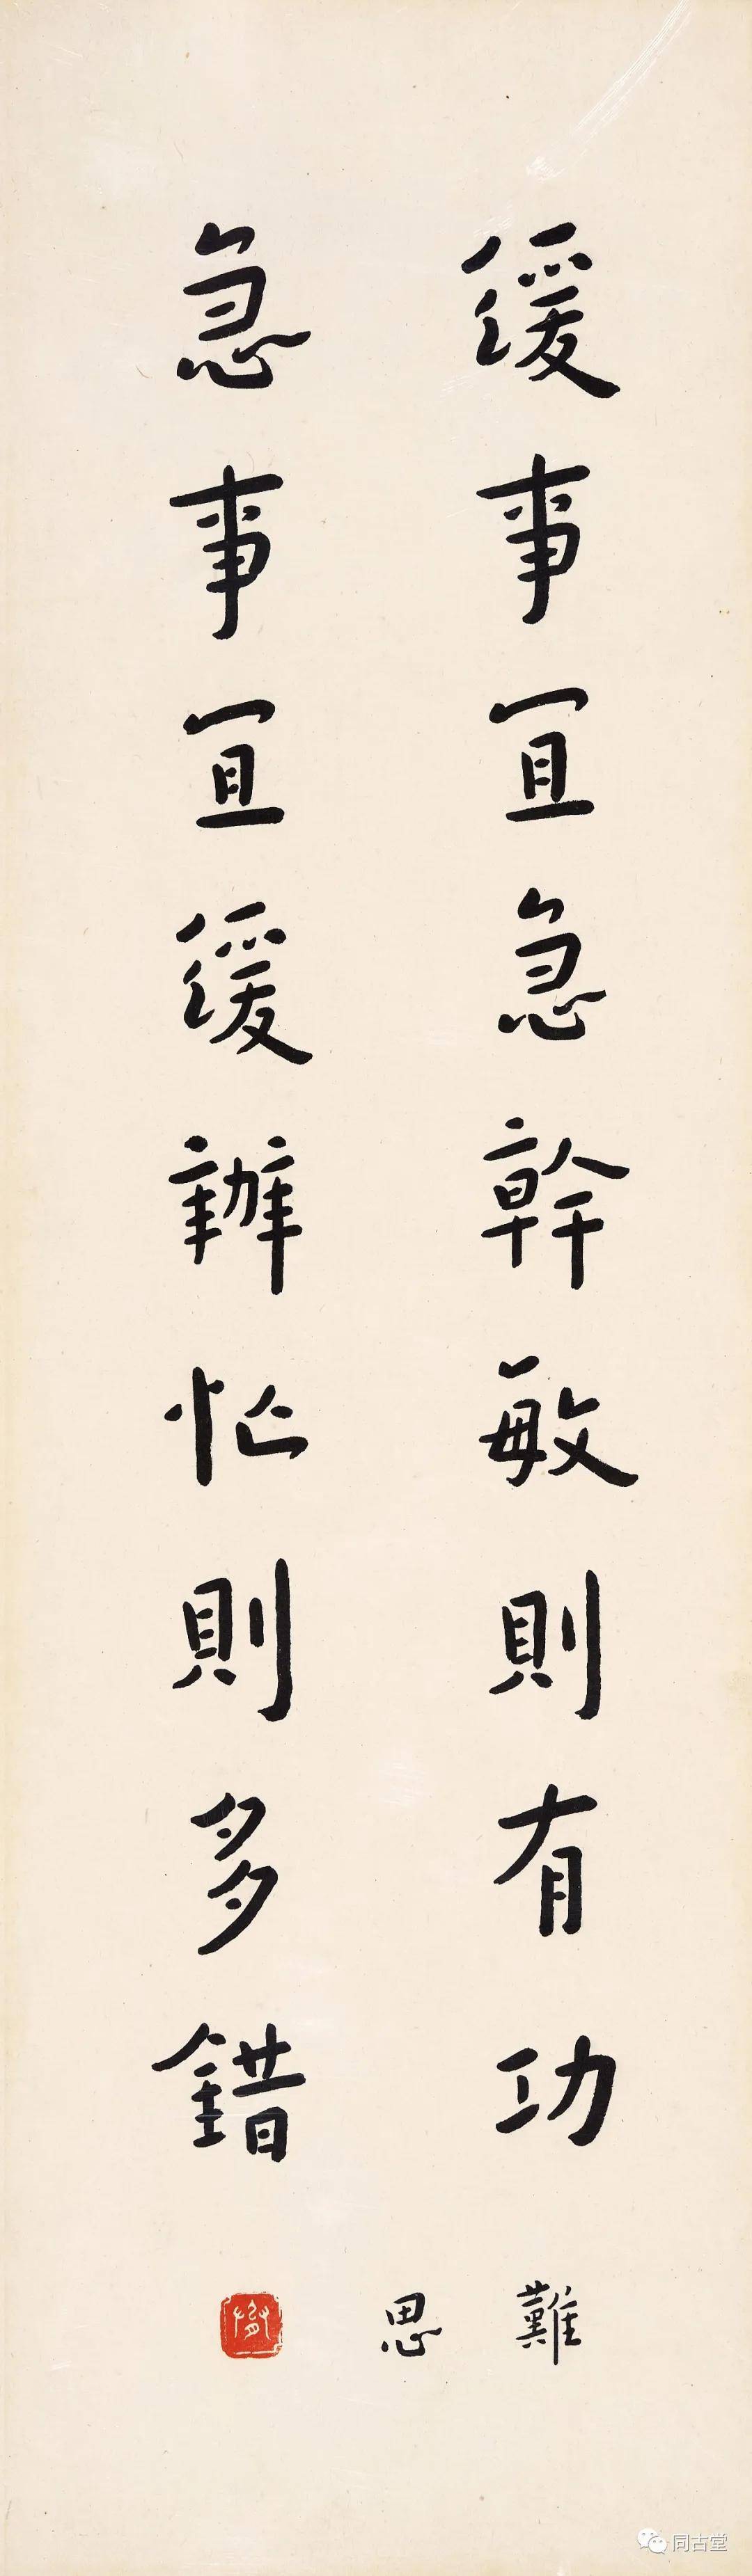 緩事宜急幹敏則有功
急事宜緩辦忙則多錯
難思
同古堂